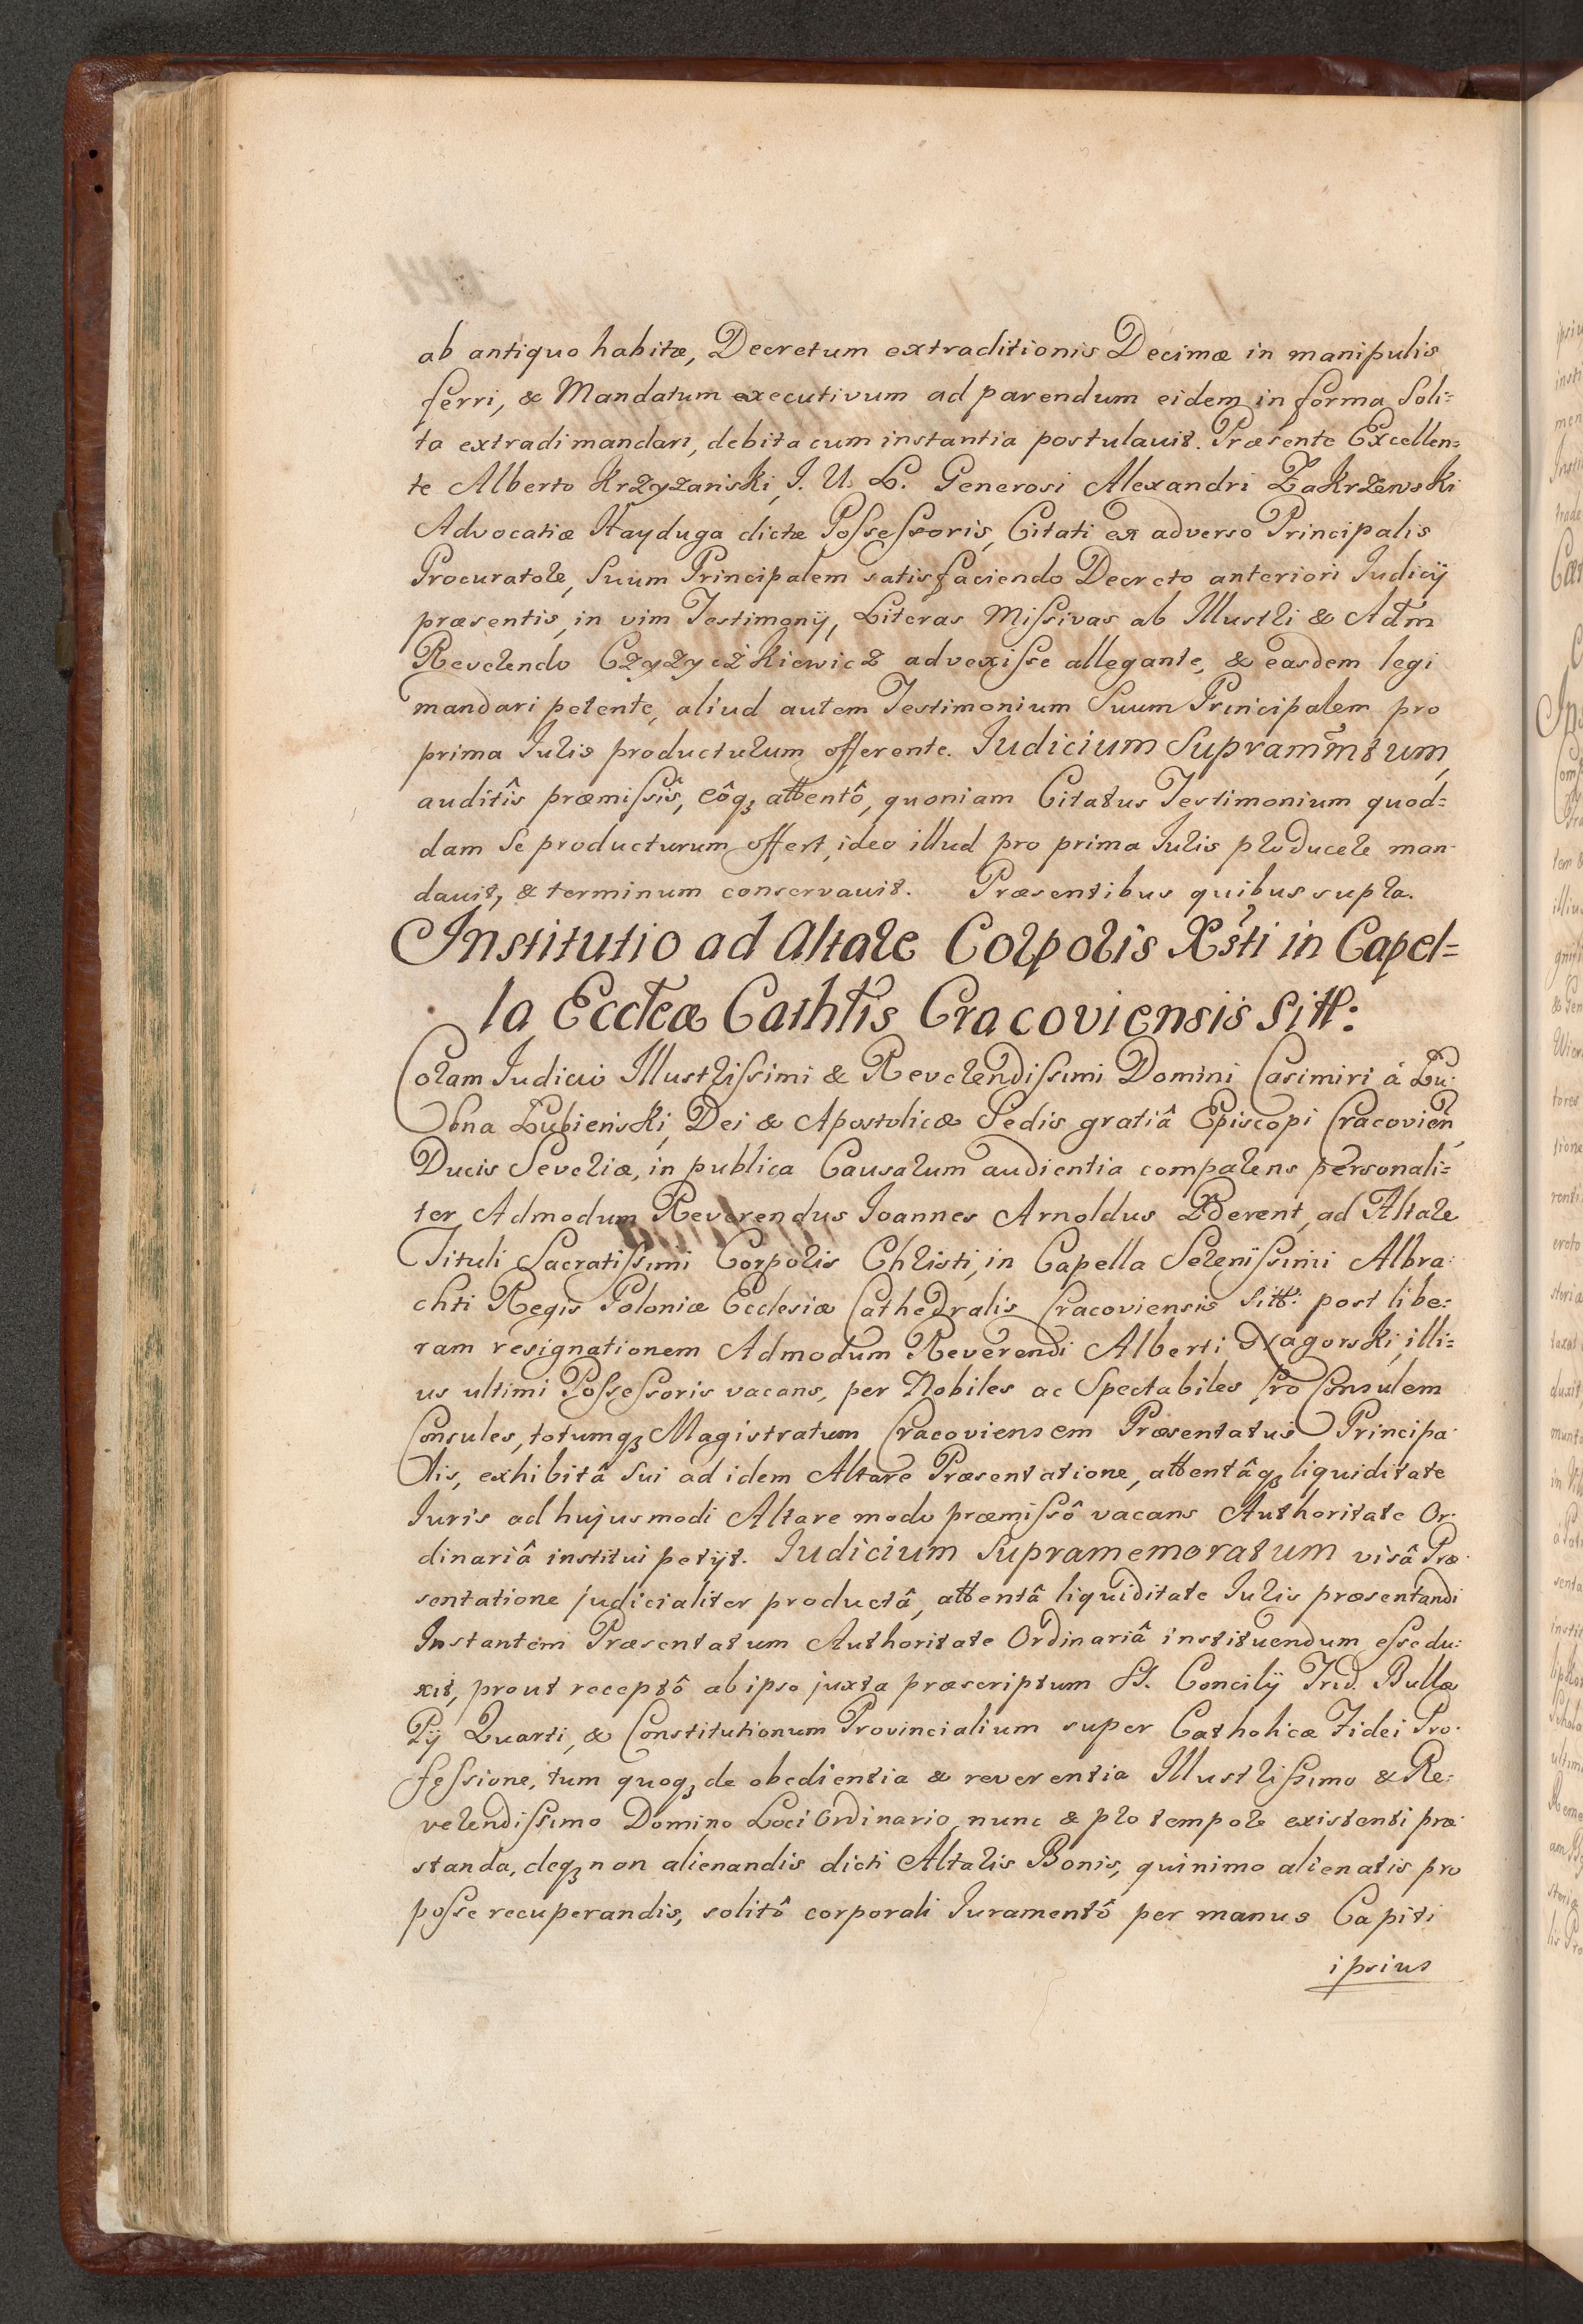 ab antiquo habitæ, Decretum extraditionis Decimæ in manipulis
ferri, & Mandatum executivum ad parendum eidem in forma Soli=
ta extradi mandari, debita cum instantia postulavit. Præsente Excellen=
te Alberto Krzyzanski, J. U. L. Generosi Alexandri Zakrzewski
Advocatiæ Hayduga dictæ Possessoris, Citati ex adverso Principalis
Procuratore, Suum Principalem satisfaciendo Decreto anteriori Iudicÿ
præsentis, in vim Testimonÿ, Literas Missivas ab Illustri & Adm̃
Reverendo Czyzyczkiewicz advexisse allegante, & easdem legi
mandari petente, aliud autem Testimonium Suum Principalem pro
prima Iuris producturum offerente. Iudicium Supramm̃tum,
auditîs præmissîs, eôq₃ attentô, quoniam Citatus Testimonium quod=
dam Se producturum offert, ideo illud pro prima Iuris producere man-
davit, & terminum conservavit. Præsentibus quibus supra.
Institutio ad Altare Corporis Xsti in Capel=
la Eccleæ Cathlis Cracoviensis Sitt:
Coram Iudicio Illustrissimi & Reverendissimi Domini Casimiri á Łu-
bna Łubienski, Dei & Apostolicæ Sedis gratiâ Episcopi Cracovien̄,
Ducis Severiæ, in publica Causarum audientia comparens personali=
ter Admodum Reverendus Ioannes Arnoldus Ederent, ad Altare
Tituli Sacratissimi Corporis Christi, in Capella Serenissimi Albra-
chti Regis Poloniæ Ecclesiæ Cathedralis Cracoviensis Sitt: post libe=
ram resignationem Admodum Reverendi Alberti Nagorski, illi=
us ultimi Possessoris vacans, per Nobiles ac Spectabiles Pro Consulem
Consules, totumq₃ Magistratum Cracoviensem Præsentatus Principa-
lis, exhibitâ Sui ad idem Altare Præsentatione, attentâq₃ liquiditate
Iuris ad hujusmodi Altare modo præmissô vacans Authoritate Or-
dinariâ institui petÿt. Iudicium Supramemoratum visâ Præ-
sentatione judicialiter productâ, attentâ liquiditate Iuris præsentandi
Instantem Præsentatum Authoritate Ordinariâ instituendum esse du=
xit, prout receptô ab ipso juxta præscriptum St. Concilÿ Trid. Bullæ
Pÿ Quarti, & Constitutionum Provincialium super Catholicæ Fidei Pro-
fessione, tum quoq₃ de obedientia & reverentia Illustrissimo & Re-
verendissimo Domino Loci Ordinario, nunc & pro tempore existenti præ-
standa, deq₃ non alienandis dicti Altaris Bonis, quinimo alienatis pro
posse recuperandis, solitô corporali Iuramentô per manus Capiti
ipsius